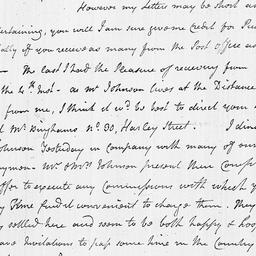 However my Letter may be short and
ertaining, you will I am sure give me Credit for Pu
ally if you receive as many from the Post office as
The last I had the Pleasure of receiving from
the 4th Inst. - as Mr Johnson lives at the Distance
from me, I think it wd be best to direct your
Mr Binghams No. 30, Harley Street. I dined
ohnson Yesterday in Company with many of our
nymon - Mr & Mrs Johnson present their Comp
offer to execute any Commissions with which y
y Time find it convenient to charge them. They
y settled here and seem to be both happy &
ave Invitations to pass some time in the Country